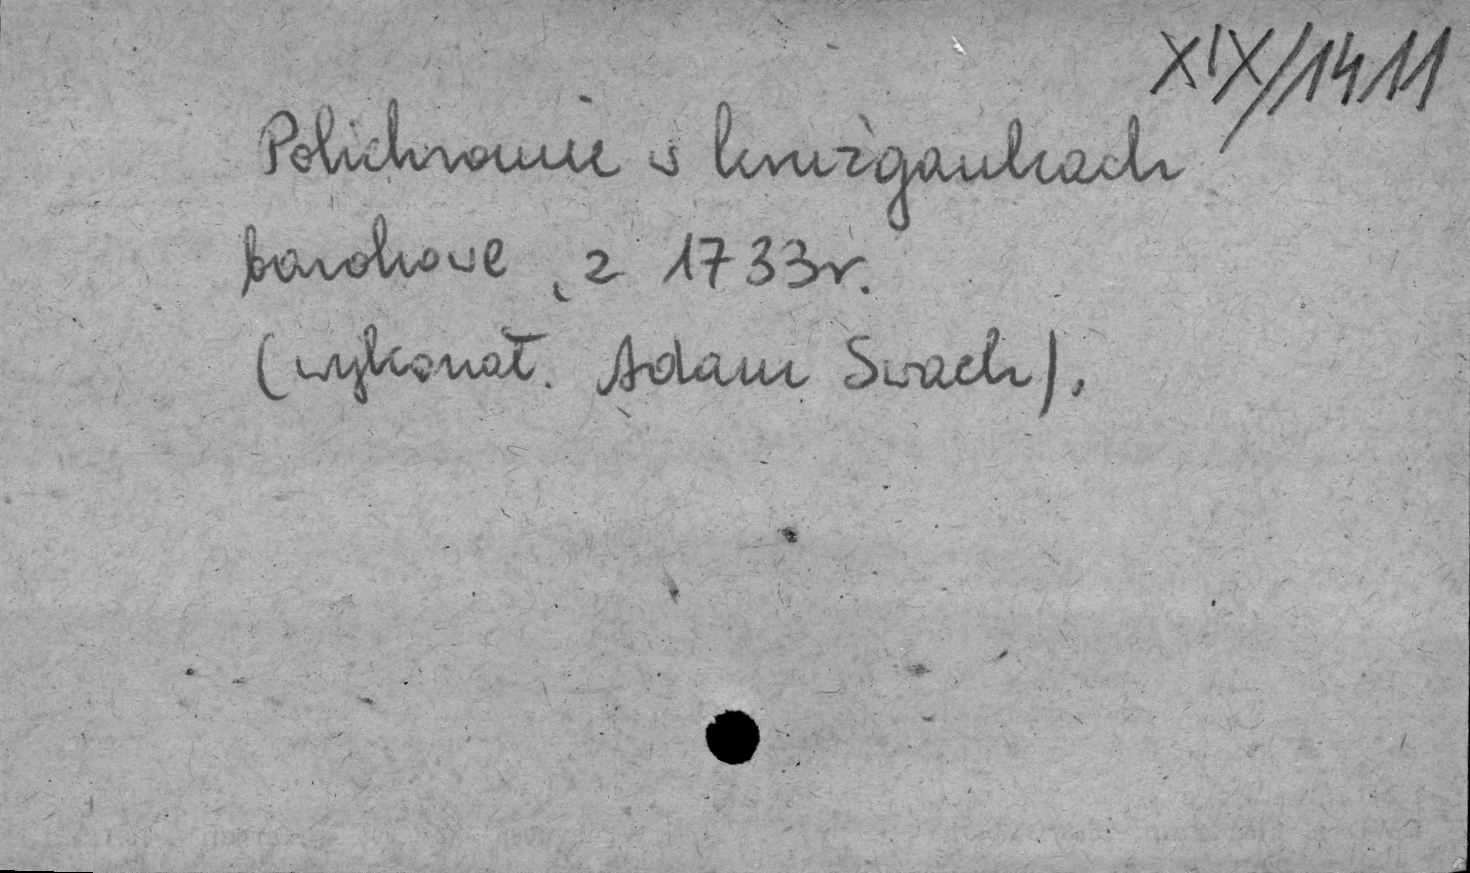 XIX/1411
Polichromie w krużgankach
barokowe, z 1733r.
(wykonał. Adam Swach).